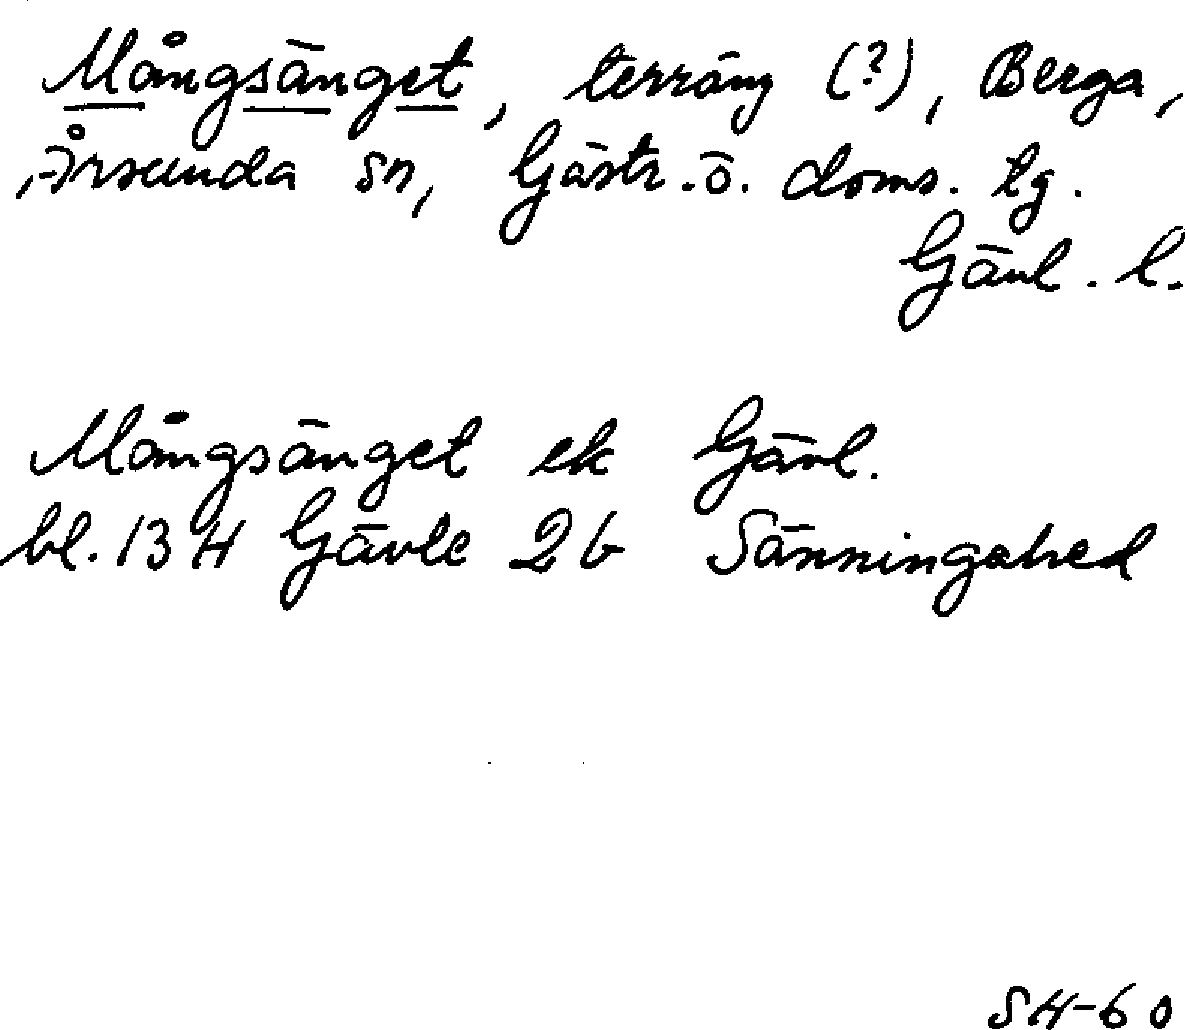 Mångsänget, terräng (?), Berga,
Årsunda sn, Gästr. ö. doms. tg.
Gävl. l.
Mångsänget ek Gävl.
bl. 13 H Gävle 2 b Sänningahed
SH-60